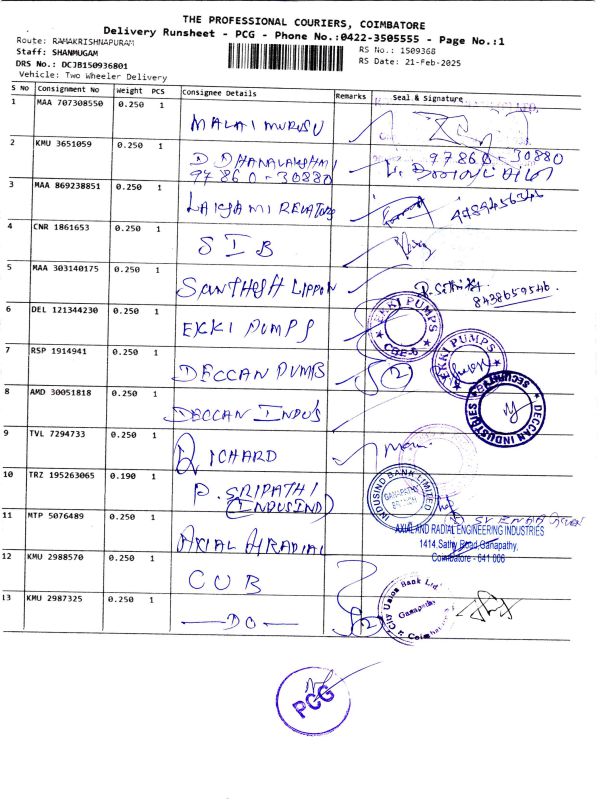 THE PROFESSIONAL COURIERS, COIMBATORE
Delivery Runsheet - PCG - Phone No.:0422-3505555 - Page No.:1
Route: RAMAKRISHNAPURAM
RS No.: 1509368
Staff: SHANMUGAM
RS Date: 21-Feb-2025
DRS No.: DCJB150936801
Vehicle: Two Wheeler Delivery
S No Consignment No Weight PCS Consignee Details Remarks Seal & Signature
1 MAA 707308550 0.250 1 MALAI MURUSU
2 KMU 3651059 0.250 1 D. DHANALAKSHMI 97860-30880
97860-30880
3 MAA 869238851 0.250 1 LAKSHMI RELATORS
4 CNR 1861653 0.250 1 SIB
5 MAA 303140175 0.250 1 SANTHOSH LIPPON
8438659546
6 DEL 121344230 0.250 1 EKKI PUMPS
EKKI PUMPS
CBE-6
7 RSP 1914941 0.250 1 DECCAN PUMPS
EKKI PUMPS
8 AMD 30051818 0.250 1 DECCAN INDUS
DECCAN INDUSTRIES SECURITY
9 TVL 7294733 0.250 1 RICHARD
10 TRZ 195263065 0.190 1 P. SRIPATHI
(INDUSIND)
INDUSIND BANK LIMITED
GANAPATHY BRANCH
11 MTP 5076489 0.250 1 AXIAL & RADIAL
AXIAL AND RADIAL ENGINEERING INDUSTRIES
1414, Sathy Road, Ganapathy,
Coimbatore - 641 006
12 KMU 2988570 0.250 1 CUB
13 KMU 2987325 0.250 1 —DO—
City Union Bank Ltd
Ganapathy
Coimbatore
PCG